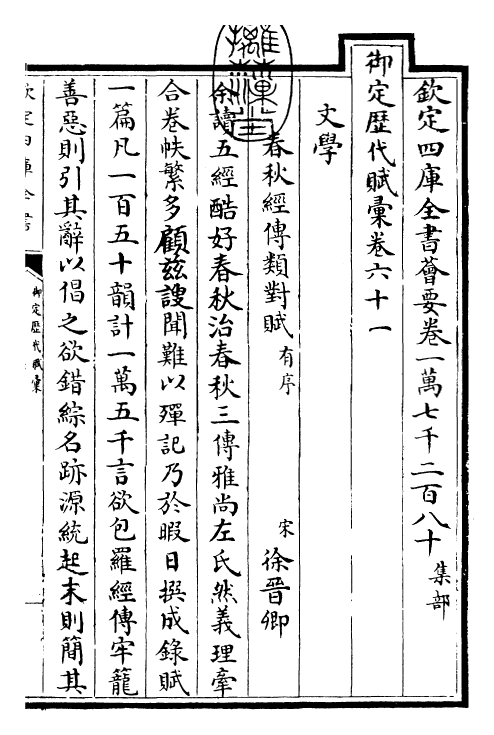 欽定四庫全書薈要卷一萬七千二百八十 集部
御定歴代賦彙卷六十一
文學
春秋經傳類對賦 有序 宋 徐晉卿
余讀五經酷好春秋治春秋三傳雅尚左氏然義理牽
合卷帙繁多顧兹謏聞難以殫記乃於暇日撰成錄賦
一篇凡一百五十韻計一萬五千言欲包羅經傳牢籠
善惡則引其辭以倡之欲錯綜名跡源統起末則簡其
欽定四庫全書
御定歴代賦彙